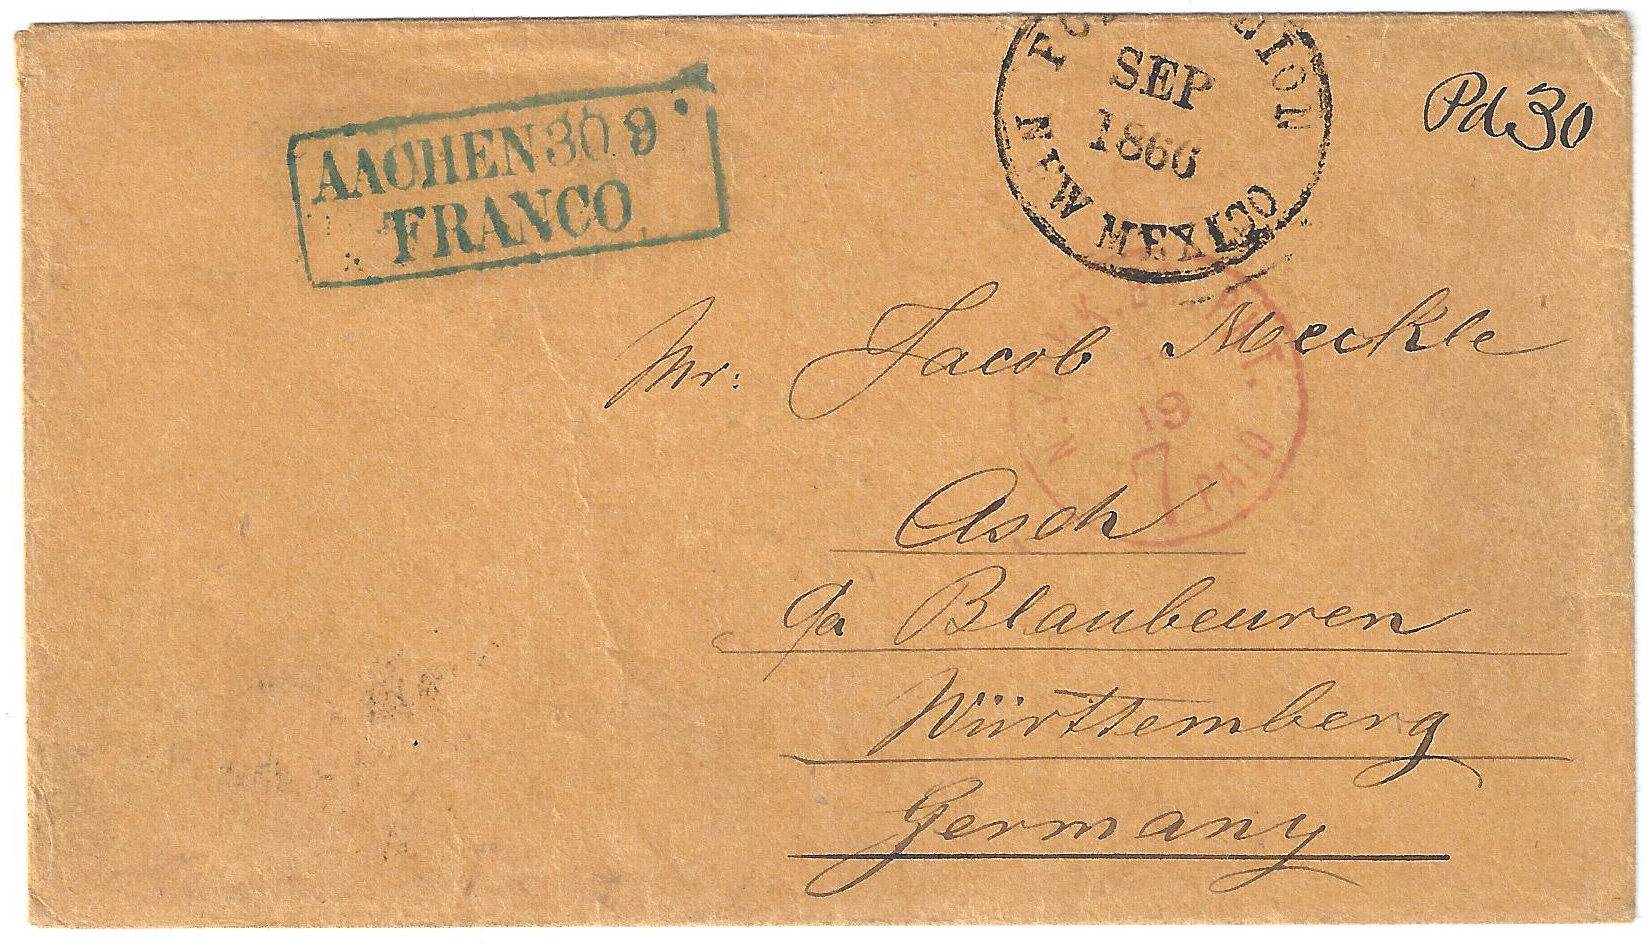 AACHEN 30 9
FRANCO
FORT UNION
SEP
1866
NEW MEXICO
Pd 30
N. YORK. BR. PKT.
19
7
PAID
Mr: Jacob Meckle
Asch
Blaubeuren
Württemberg
Germany